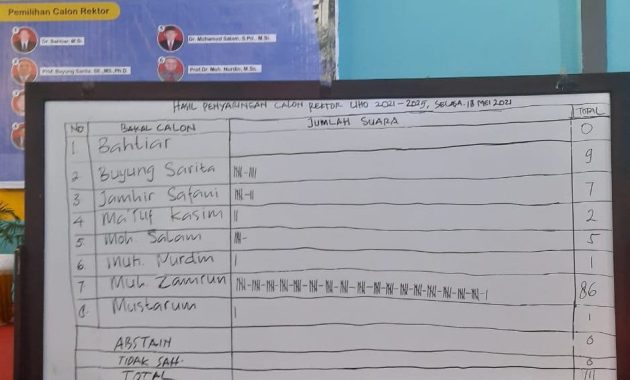 Pemilihan Calon Rektor
Dr. Bahtiar, M.Si.
Dr. Muhamad Salam, S.Pd., M.Si.
Prof. Buyung Sarita, SE.,MS.,Ph.D.
Prof. Dr. Muh. Nurdin, M.Sc.
HASIL PENYARINGAN CALON REKTOR UHO 2021-2025, SELASA, 18 MEI 2021
NO BAKAL CALON JUMLAH SUARA TOTAL
1 Bahtiar 0
2 Buyung Sarita 9
3 Jamhir Safani 7
4 Ma'ruf Kasim 2
5 Moh. Salam 5
6 Muh. Nurdin 1
7 Muh. Zamrun 86
8. Mustarum 1
ABSTAIN 0
TIDAK SAH. 0
TOTAL 111